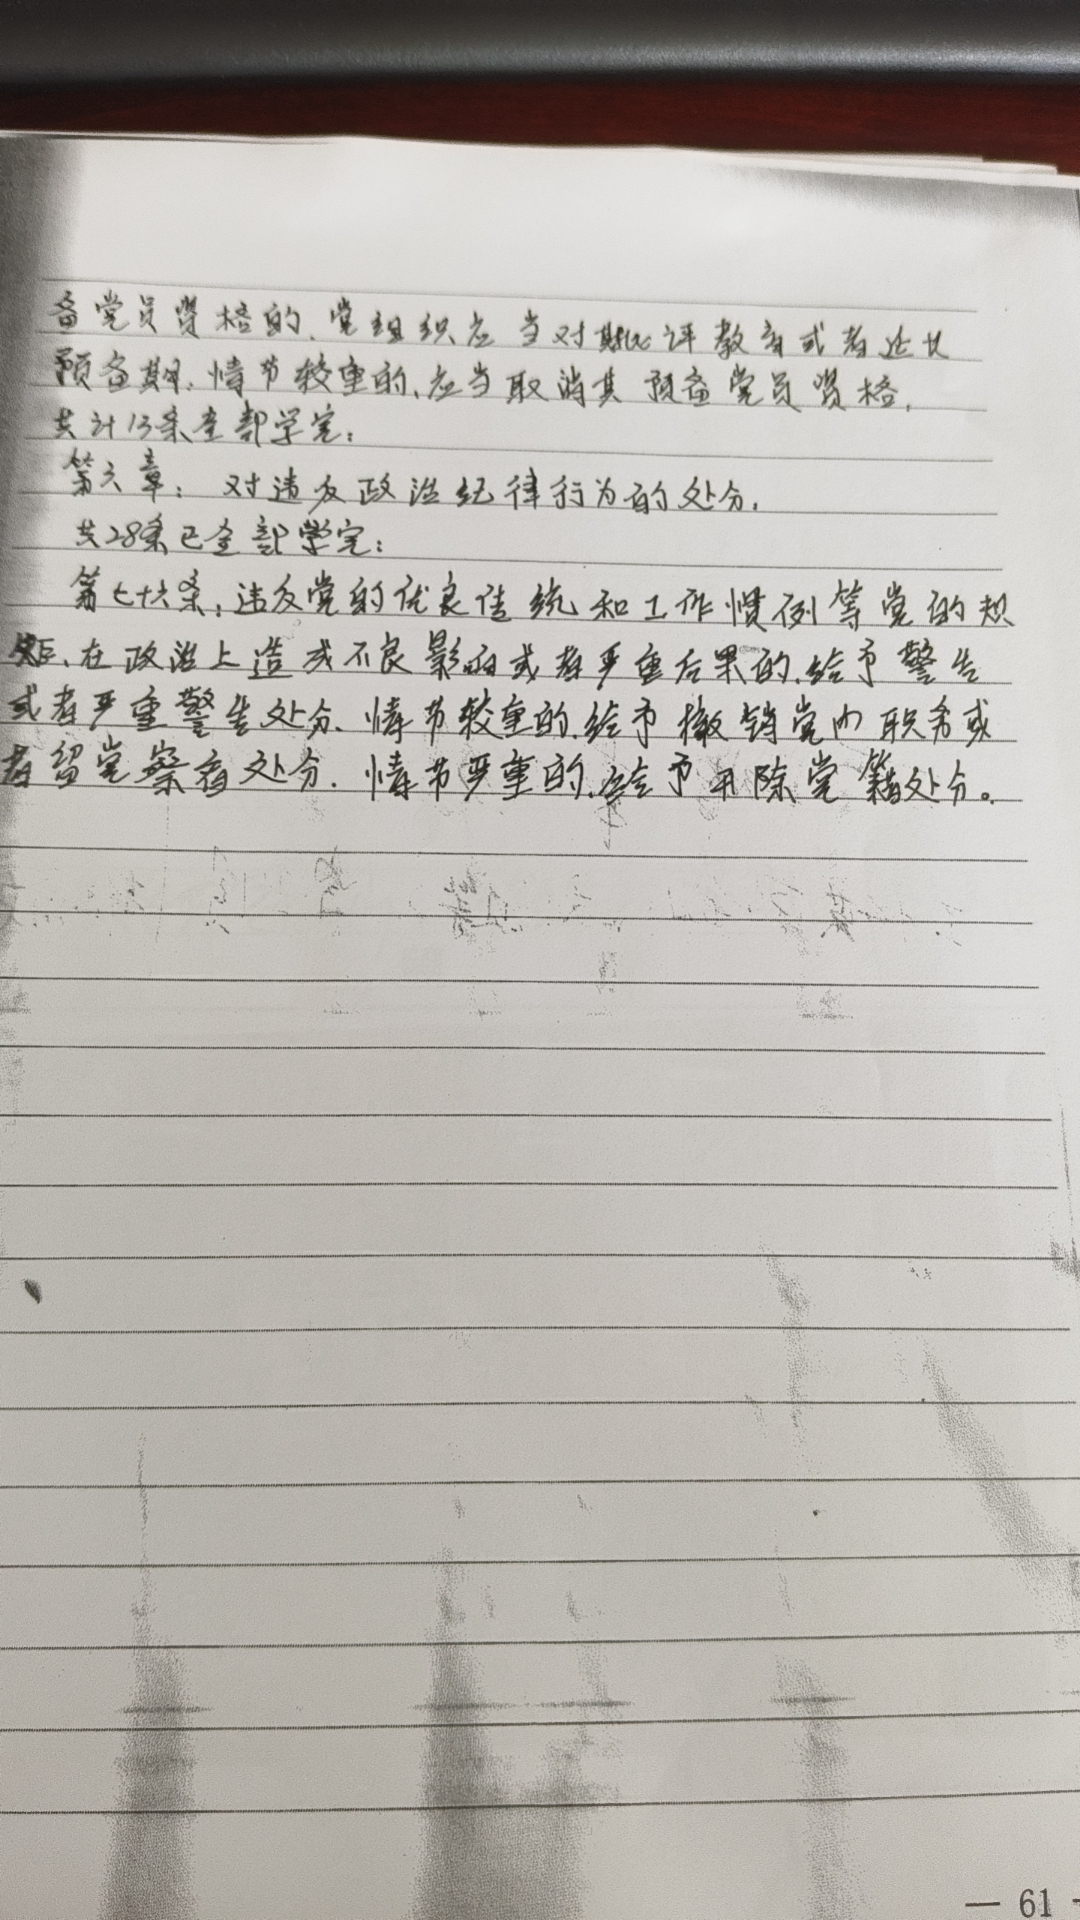 备党员资格的、党组织应当对其批评教育或者延长
预备期、情节较重的、应当取消其预备党员资格,
共计13条全部学完;
第六章:对违反政治纪律行为的处分,
共28条已全部学完:
第七十六条,违反党的优良传统和工作惯例等党的规
矩、在政治上造成不良影响或者严重后果的、给予警告
或者严重警告处分、情节较重的、给予撤销党内职务或
者留党察看处分、情节严重的、给予开除党籍处分。
— 61